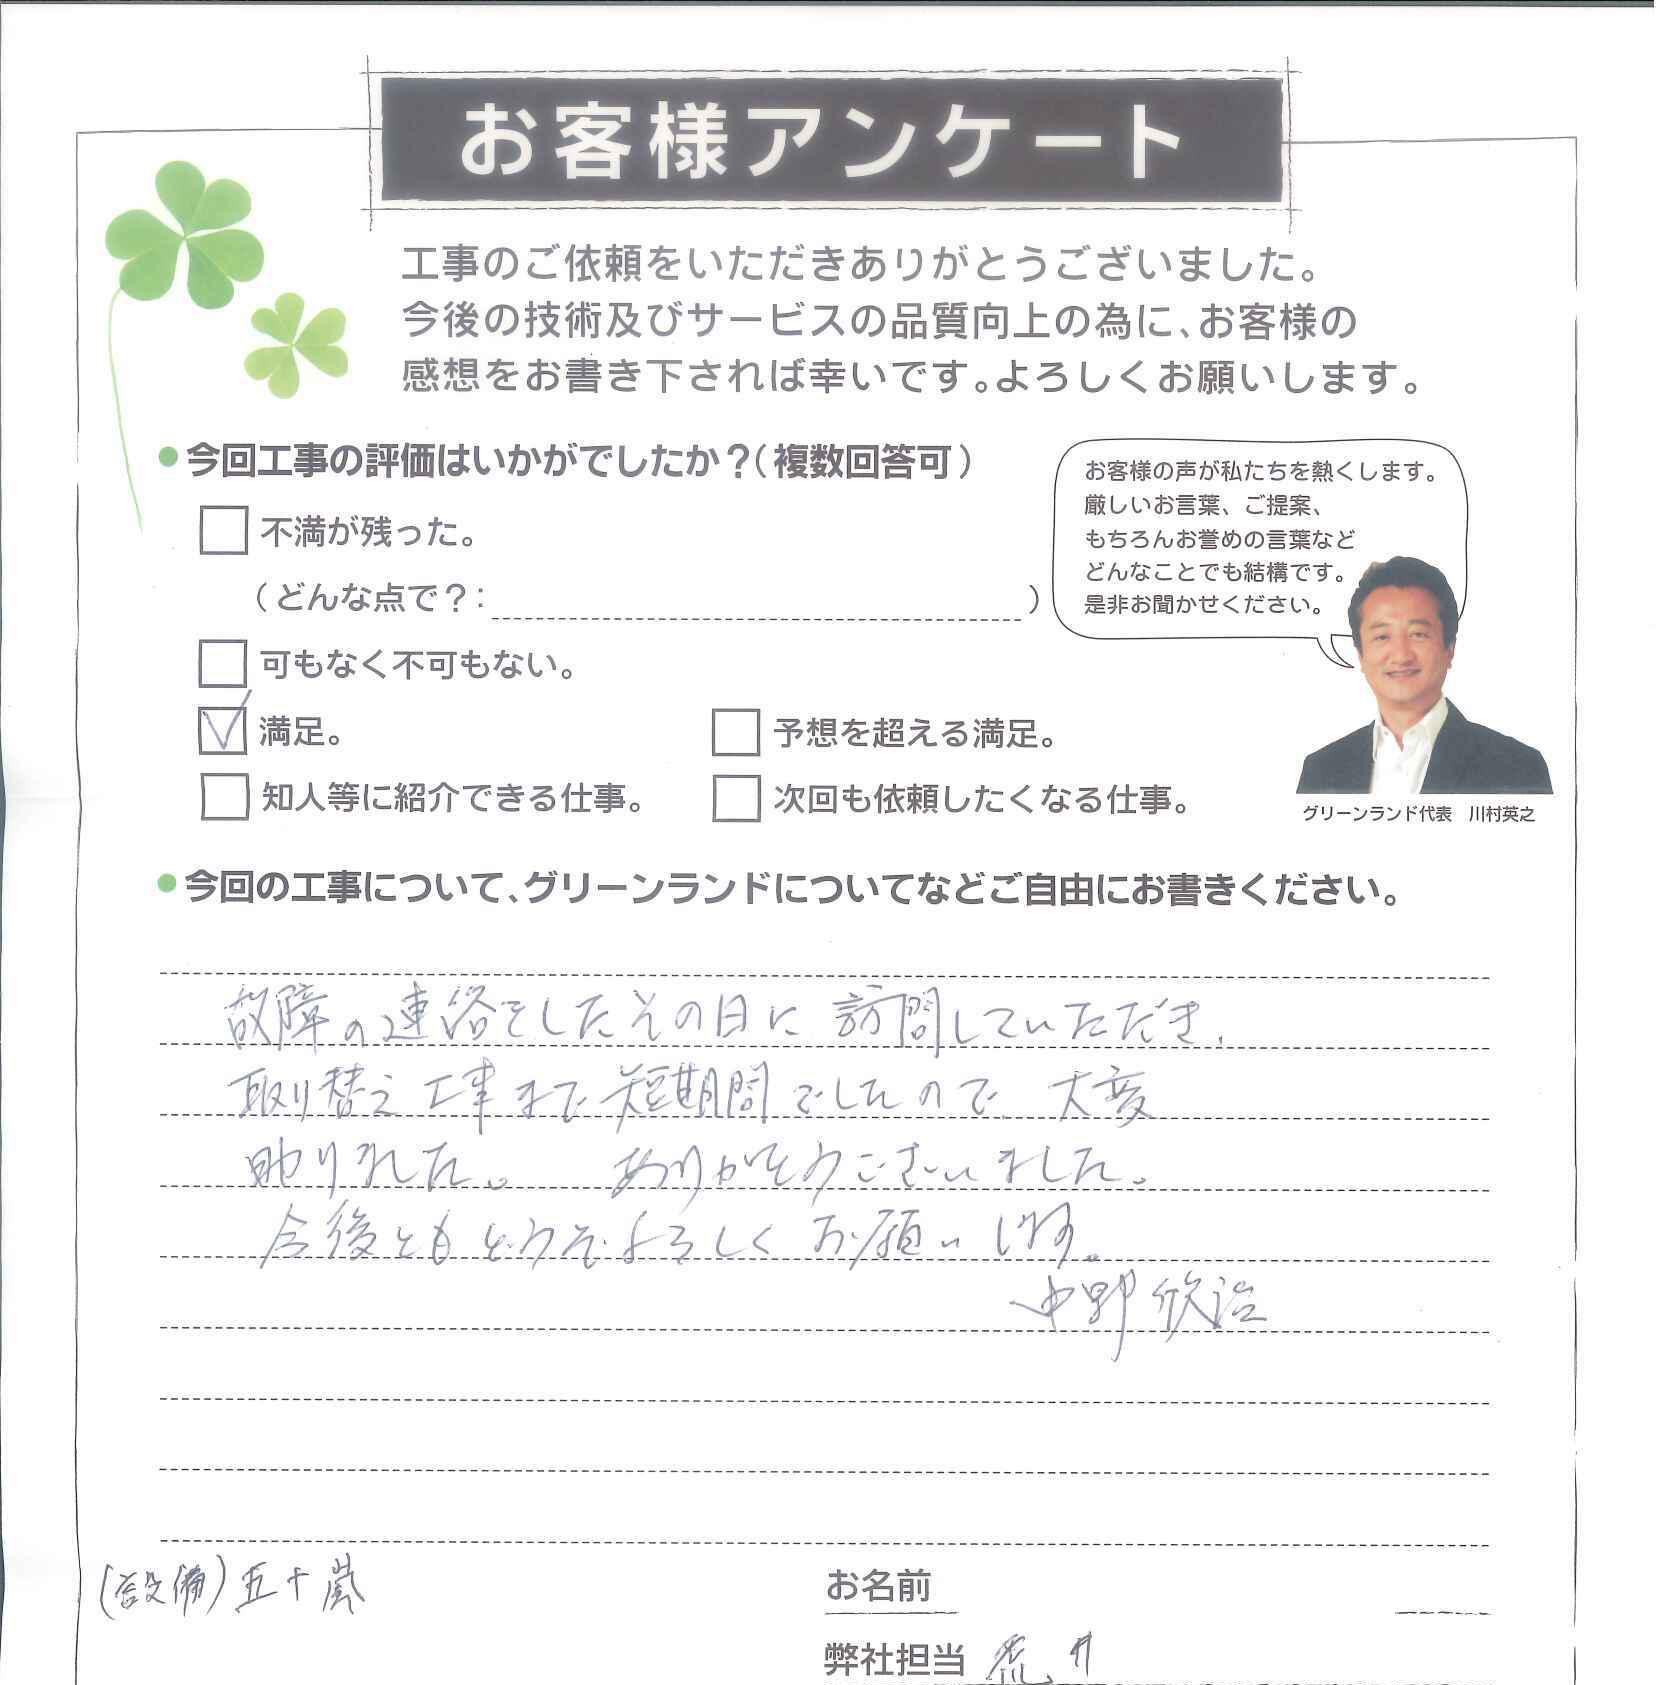 お客様アンケート
工事のご依頼をいただきありがとうございました。
今後の技術及びサービスの品質向上の為に、お客様の
感想をお書き下されば幸いです。よろしくお願いします。
●今回工事の評価はいかがでしたか？（複数回答可）
不満が残った。
（どんな点で？：　　　）
可もなく不可もない。
満足。
予想を超える満足。
知人等に紹介できる仕事。
次回も依頼したくなる仕事。
お客様の声が私たちを熱くします。
厳しいお言葉、ご提案、
もちろんお誉めの言葉など
どんなことでも結構です。
是非お聞かせください。
グリーンランド代表　川村英之
●今回の工事について、グリーンランドについてなどご自由にお書きください。
故障の連絡をしたその日に訪問していただき、
取り替え工事まで短期間でしたので、大変
助りました。　ありがとうございました。
今後ともどうぞよろしくお願いします。
中野 欣治
(設備) 五十嵐
お名前
弊社担当 荒井